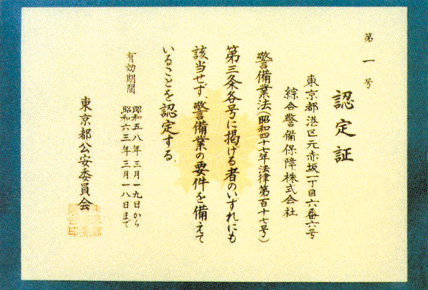 第一号
認定証
東京都港区元赤坂一丁目六番六号
綜合警備保障株式会社
警備業法(昭和四十七年法律第百十七号)
第三条各号に掲げる者のいずれにも
該当せず、警備業の要件を備えて
いることを認定する。
有効期間
昭和五八年三月一九日から
昭和六三年三月一八日まで
東京都公安委員会